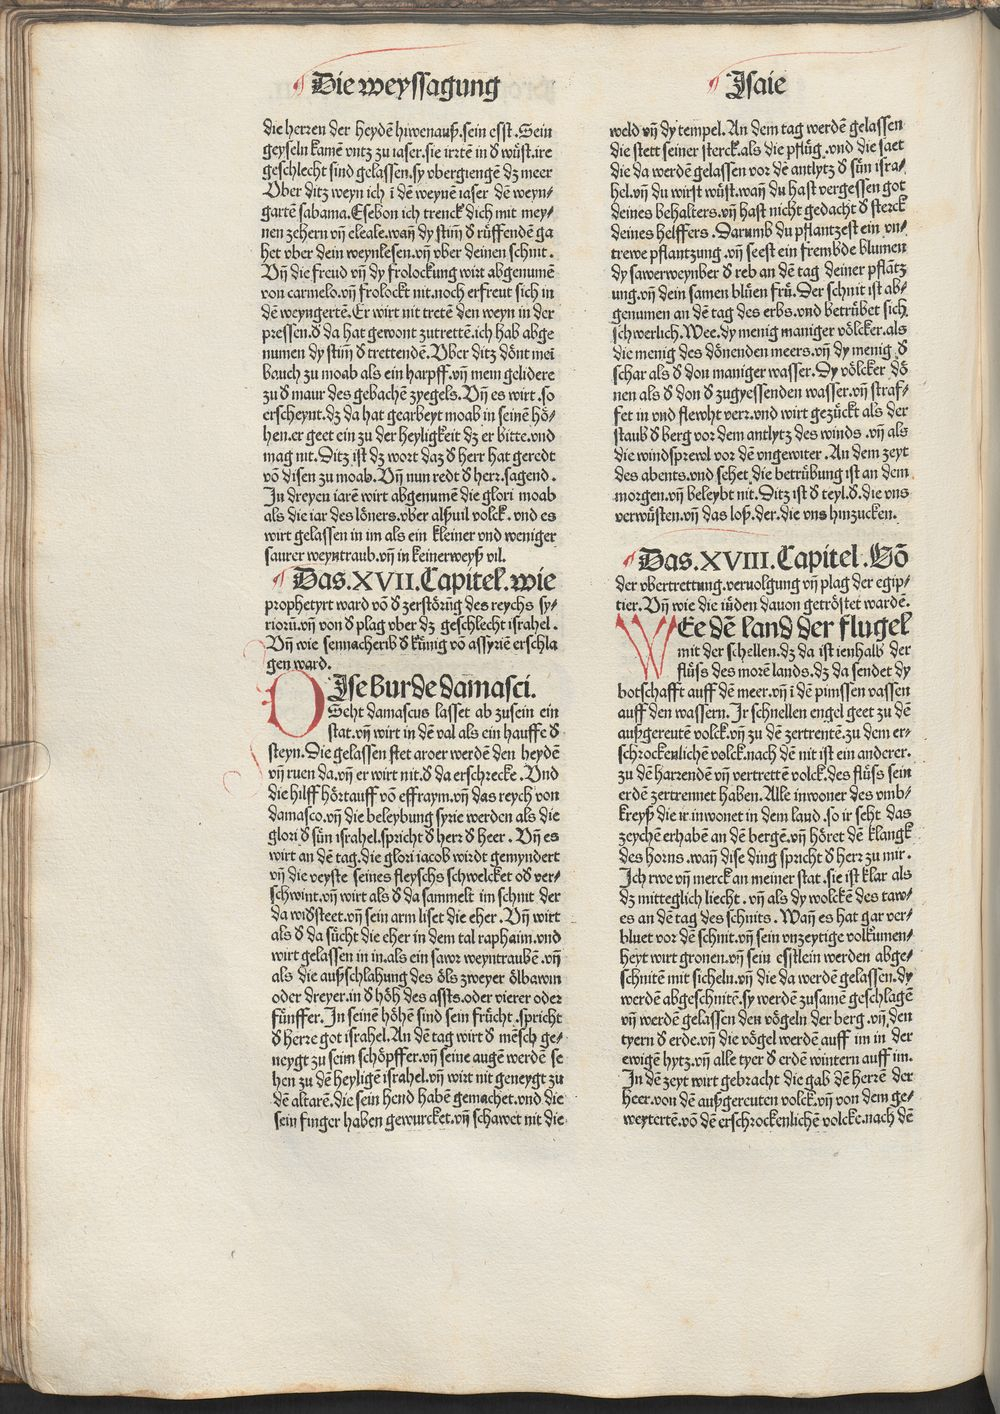 Die weyssagung
Isaie
die herren der heydē hiwenauß.sein esst.Sein
geyseln kamē vntz zu iaser.sie irrtē in d̕ wüst.ire
geschlecht sind gelassen.sy vbergiengē dz meer
Vber ditz weyn ich ī dē weynē iaser dē weyn⸗
gartē sabama.Esebon ich trenck dich mit mey⸗
nen zehern vn̄ eleale.wan̄ dy stim̄ d̕ rüffendē ga
het vber dein weynlesen.vn̄ vber deinen schnit.
Vn̄ die freud vn̄ dy frolockung wirt abgenumē
von carmelo.vn̄ frolockt nit.noch erfreut sich in
dē weyngertē.Er wirt nit tretē den weyn in der
pressen.d̕ da hat gewont zutrettē.ich hab abge
numen dy stim̄ d̕ trettendē.Vber ditz dönt mei
bauch zu moab als ein harpff.vn̄ mein gelidere
zu d̕ maur des gebachē zyegels. Vn̄ es wirt.so
erscheynt.dz da hat gearbeyt moab in seinē hö⸗
hen.er geet ein zu der heyligkeit dz er bitte.vnd
mag nit.Ditz ist dz wort daz d̕ herr hat geredt
vō disen zu moab.Vn̄ nun redt d̕ herr.sagend.
In dreyen iarē wirt abgenumē die glori moab
als die iar des löners.vber alßuil volck. vnd es
wirt gelassen in im als ein kleiner vnd weniger
saurer weyntraub.vn̄ in keinerweyß vil.
Das.XVII.Capitel.wie
prophetyrt ward vō d̕ zerstörūg des reychs sy⸗
riorū.vn̄ von d̕ plag vber dz geschlecht israhel.
Vn̄ wie sennacherib d̕ künig vo assyriē erschla
gen ward.
DJse burde damasci.
Seht damascus lasset ab zusein ein
stat.vn̄ wirt in dē val als ein hauffe d̕
steyn.Die gelassen stet aroer werdē den heydē
vn̄ ruen da.vn̄ er wirt nit.d̕ da erschrecke.Vnd
die hilff hört auff vō effraym.vn̄ das reych von
damasco.vn̄ die beleybung syrie werden als die
glori d̕ sün israhel.spricht d̕ herr d̕ heer. Vn̄ es
wirt an dē tag.die glori iacob wirdt gemyndert
vn̄ die veyste seines fleyschs schwelcket od̕ ver⸗
schwint.vn̄ wirt als d̕ da sammelt im schnit der
da wid̕steet.vn̄ sein arm liset die eher.Vn̄ wirt
als d̕ da sücht die eher in dem tal raphaim.vnd
wirt gelassen in in.als ein sawr weyntraubē.vn̄
als die außschlahung des öls zweyer ölbawm
oder dreyer.in d̕ höh des assts.oder vierer oder
fünffer.In seinē höhē sind sein frücht.spricht
d̕ herre got israhel.An dē tag wirt d̕ mēsch ge⸗
neygt zu seim schöpffer.vn̄ seine augē werdē se
hen zu dē heyligē israhel.vn̄ wirt nit geneygt zu
dē altarē.die sein hend habē gemachet.vnd die
sein finger haben gewurcket.vn̄ schawet nit die
weld vn̄ dy tempel.An dem tag werdē gelassen
die stett seiner sterck.als die pflüg.vnd die saet
die da werdē gelassen vor dē antlytz d̕ sün isra⸗
hel.vn̄ du wirst wüst.wan̄ du hast vergessen got
deines behalters.vn̄ hast nicht gedacht d̕ sterck
deines helffers.Darumb du pflantzest ein vn⸗
trewe pflantzung.vn̄ seest ein frembde blumen
dy sawerweynber d̕ reb an dē tag deiner pflātz
ung.vn̄ dein samen blüen frü.Der schnit ist ab⸗
genumen an dē tag des erbs.vnd betrübet sich
schwerlich.Wee.dy menig maniger völcker.als
die menig des dönenden meers.vn̄ dy menig d̕
schar als d̕ don maniger wasser.Dy völcker dö
nen als d̕ don d̕ zugyessenden wasser.vn̄ straf⸗
fet in vnd flewht verr.vnd wirt gezückt als der
staub d̕ berg vor dem antlytz des winds.vn̄ als
die windsprewl vor dē vngewiter.An dem zeyt
des abents.vnd sehet die betrübung ist an dem
morgen.vn̄ beleybt nit.Ditz ist d̕ teyl.d̕.die vns
verwüsten.vn̄ das loß.der.die vns hinzucken.
Das.XVIII.Capitel.Vō
der vbertrettung.veruolgung vn̄ plag der egip⸗
tier.Vn̄ wie die iüden dauon getröstet wardē.
WEe dē land der flugel
mit der schellen.dz da ist ienhalb der
flüss des morē lands.dz da sendet dy
botschafft auff dē meer.vn̄ ī dē pinssen vassen
auff den wassern.Ir schnellen engel geet zu dē
außgereutē volck.vn̄ zu dē zertrentē.zu dem er⸗
schrockenlichē volck.nach dē nit ist ein anderer.
zu dē harrendē vn̄ vertrettē volck.des flüss sein
erdē zertrennet haben.Alle inwoner des vmb⸗
kreyß die ir inwonet in dem land.so ir seht das
zeychē erhabē an dē bergē.vn̄ höret dē klangk
des horns.wan̄ dise ding spricht d̕ herr zu mir.
Ich rwe vn̄ merck an meiner stat.sie ist klar als
dz mitteglich liecht.vn̄ als dy wolckē des taw⸗
es an dē tag des schnits.Wan̄ es hat gar ver⸗
bluet vor dē schnit.vn̄ sein vnzeytige volkumen⸗
heyt wirt gronen.vn̄ sein esstlein werden abge⸗
schnitē mit sicheln.vn̄ die da werdē gelassen.dy
werdē abgeschnitē.sy werdē zusamē geschlagē
vn̄ werdē gelassen den vögeln der berg.vn̄ den
tyern d̕ erde.vn̄ die vögel werdē auff im in der
ewigē hytz.vn̄ alle tyer d̕ erdē wintern auff im.
In dē zeyt wirt gebracht die gab dē herrē der
heer.von dē außgereuten volck.vn̄ von dem ge⸗
weytertē.vō dē erschrockenlichē volcke.nach dē